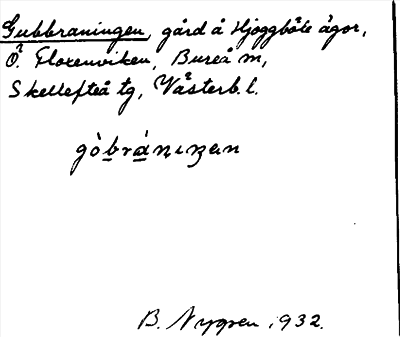 Gubbraningen, gård å Hjoggböle ägor,
Ö. Floxenviken, Bureå sn,
Skellefteå tg, Västerb. l.
gòbrániŋen
B. Nygren, 1932.